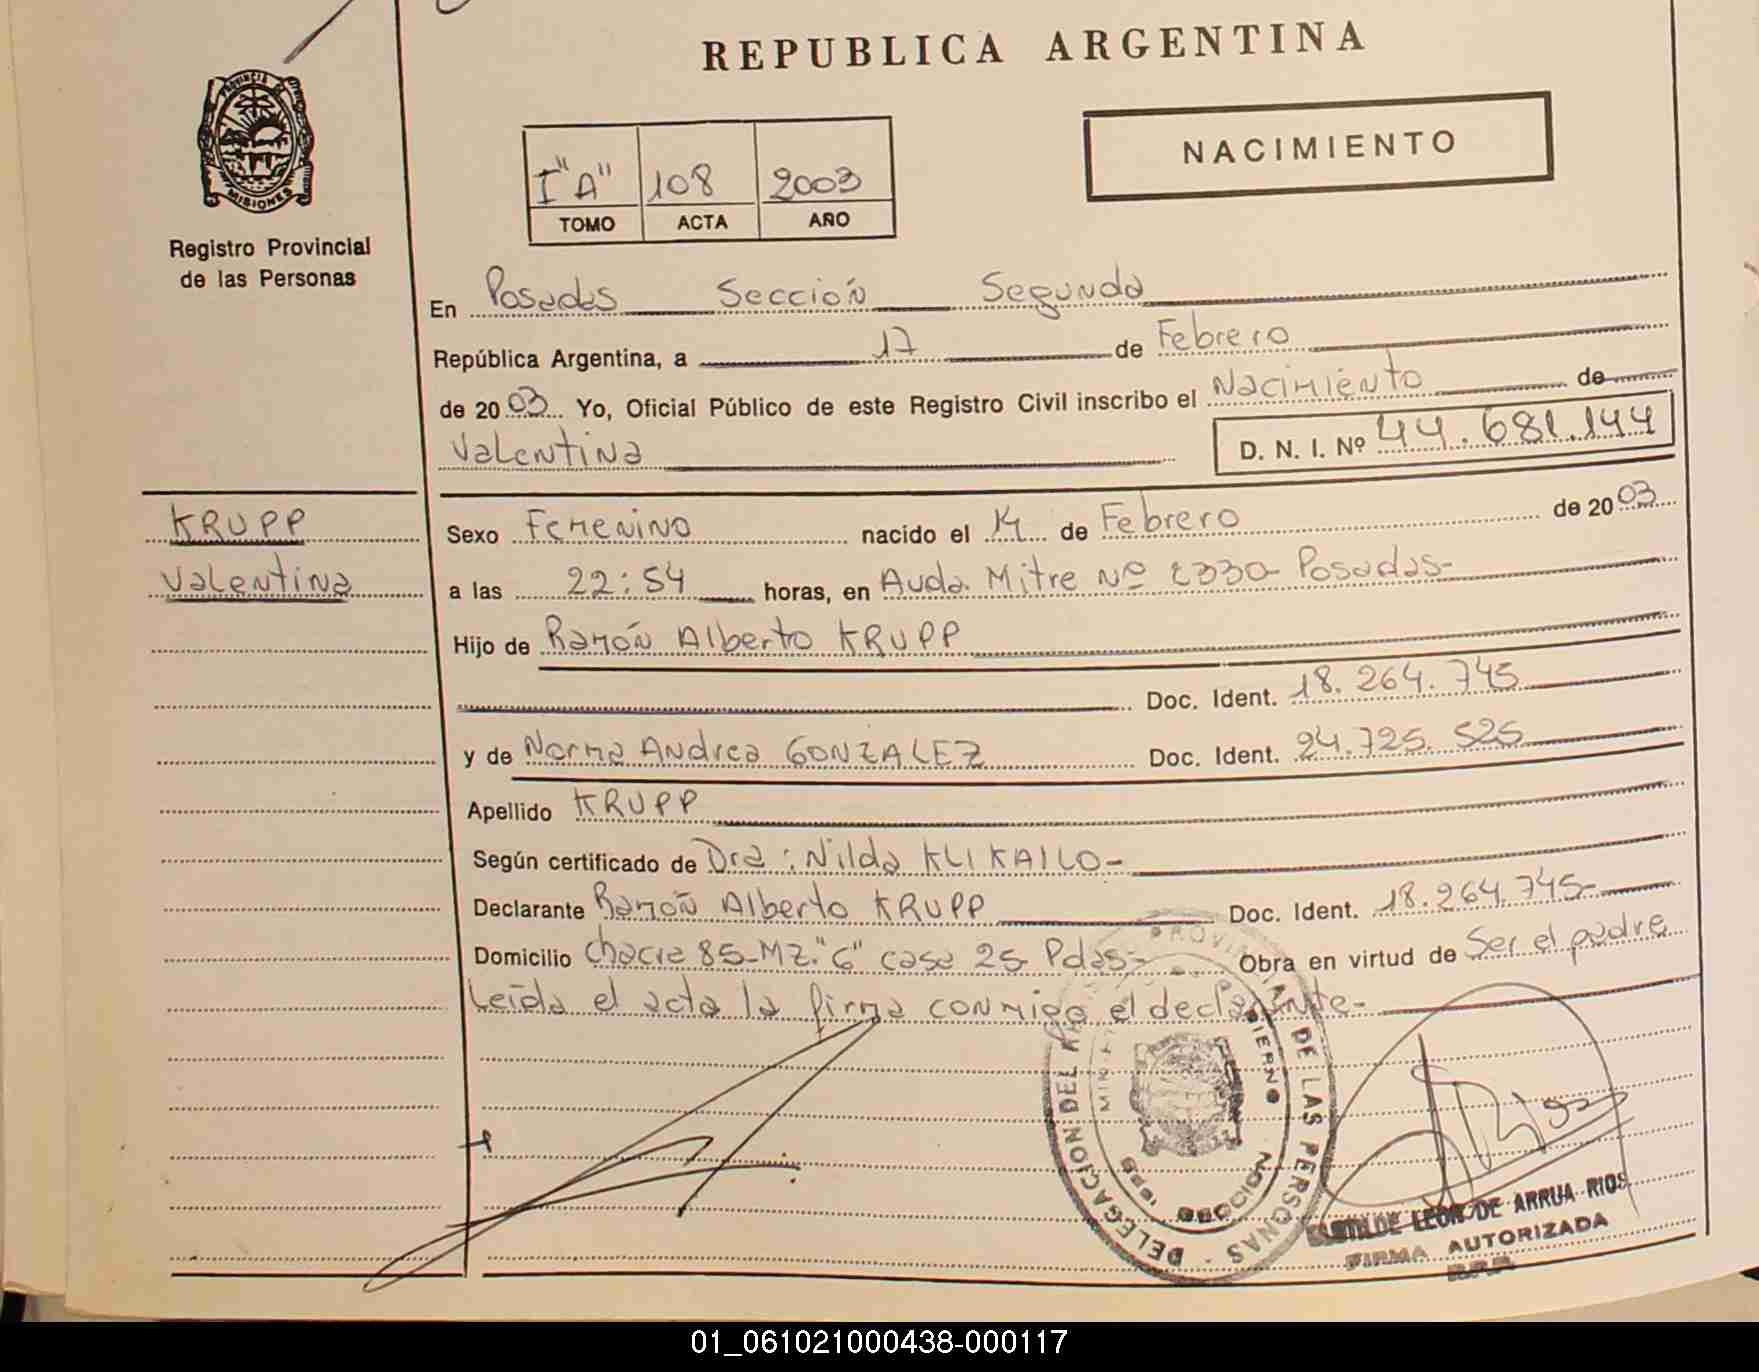 REPUBLICA ARGENTINA
PROVINCIA DE MISIONES
Registro Provincial
de las Personas
NACIMIENTO
I "A" 108 2003
TOMO ACTA AÑO
En Posadas Sección Segunda
República Argentina, a 17 de Febrero
de 2003 Yo, Oficial Público de este Registro Civil inscribo el Nacimiento de
Valentina D. N. I. Nº 44.681.144
KRUPP
Valentina
Sexo Femenino nacido el 14 de Febrero de 2003
a las 22:54 horas, en Avda. Mitre Nº 2330- Posadas-
Hijo de Ramón Alberto KRUPP
Doc. Ident. 18.264.745
y de Norma Andrea GONZALEZ Doc. Ident. 24.725.525
Apellido KRUPP
Según certificado de Dra: Nilda KLIKAILO-
Declarante Ramón Alberto KRUPP Doc. Ident. 18.264.745-
Domicilio Chacra 85-MZ."G" casa 25- Pdas- Obra en virtud de Ser el padre
Leída el acta la firma conmigo el declarante-
DE LAS PERSONAS
DELEGACION DEL
SECCION
LEON DE ARRUA RIOS
FIRMA AUTORIZADA
01_061021000438-000117